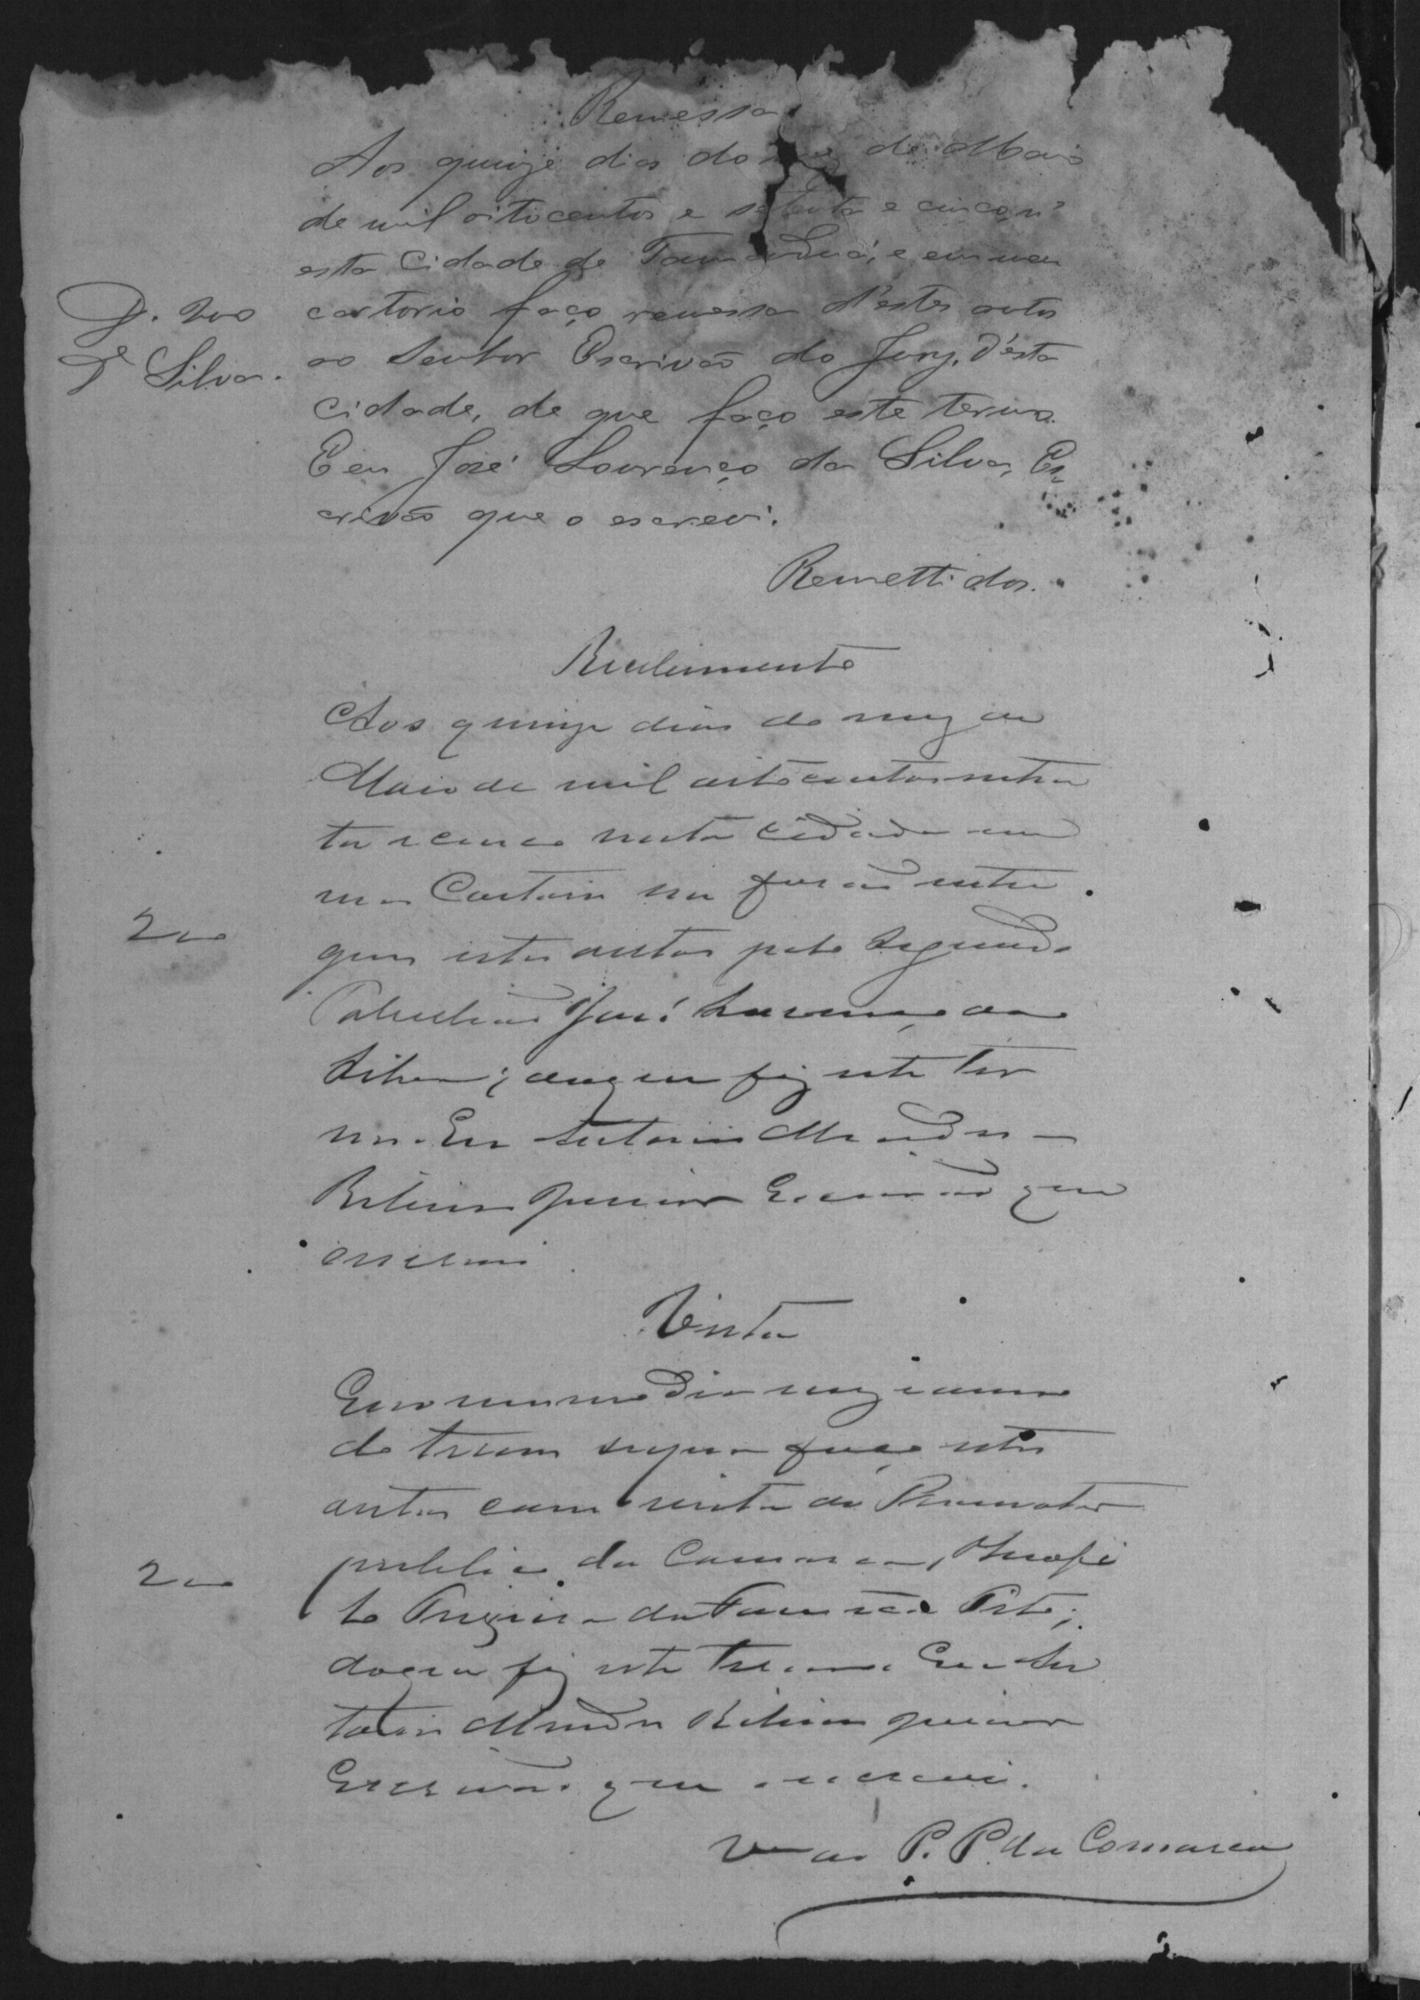 Remessa
Aos quinze dias do mez de Maio
de mil oitocentos e setenta e cinco, n'
esta Cidade de Tamanduá, e em meu
cartorio faço remessa d'estes autos
ao Senhor Escrivão do Jury, d'esta
cidade, de que faço este termo.
E eu José Lourenço da Silva, Es
crivão que o escrevi.
D. 200
Silva.
Remettidos.
Recebimento
Aos quinze dias do mez de
Maio de mil oito centos seten
ta e cinco nesta Cidade em
meu Cartorio me forão entre
gues estes autos pelo Segundo
Tabellião José Lourenço da
Silva; do que fiz este ter
mo. Eu Antonio Mendes
Ribeiro Junior Escrivão que
o escrevi
200
Vista
E no mesmo dia mez e anno
do termo supra faço estes
autos com vista ao Promotor
publico da Comarca, Theofi
lo Pereira da Fonseca
do que fiz este termo. Eu An
tonio Mendes Ribeiro Junior
Escrivão que o escrevi.
200
Vª ao P. P. da Comarca